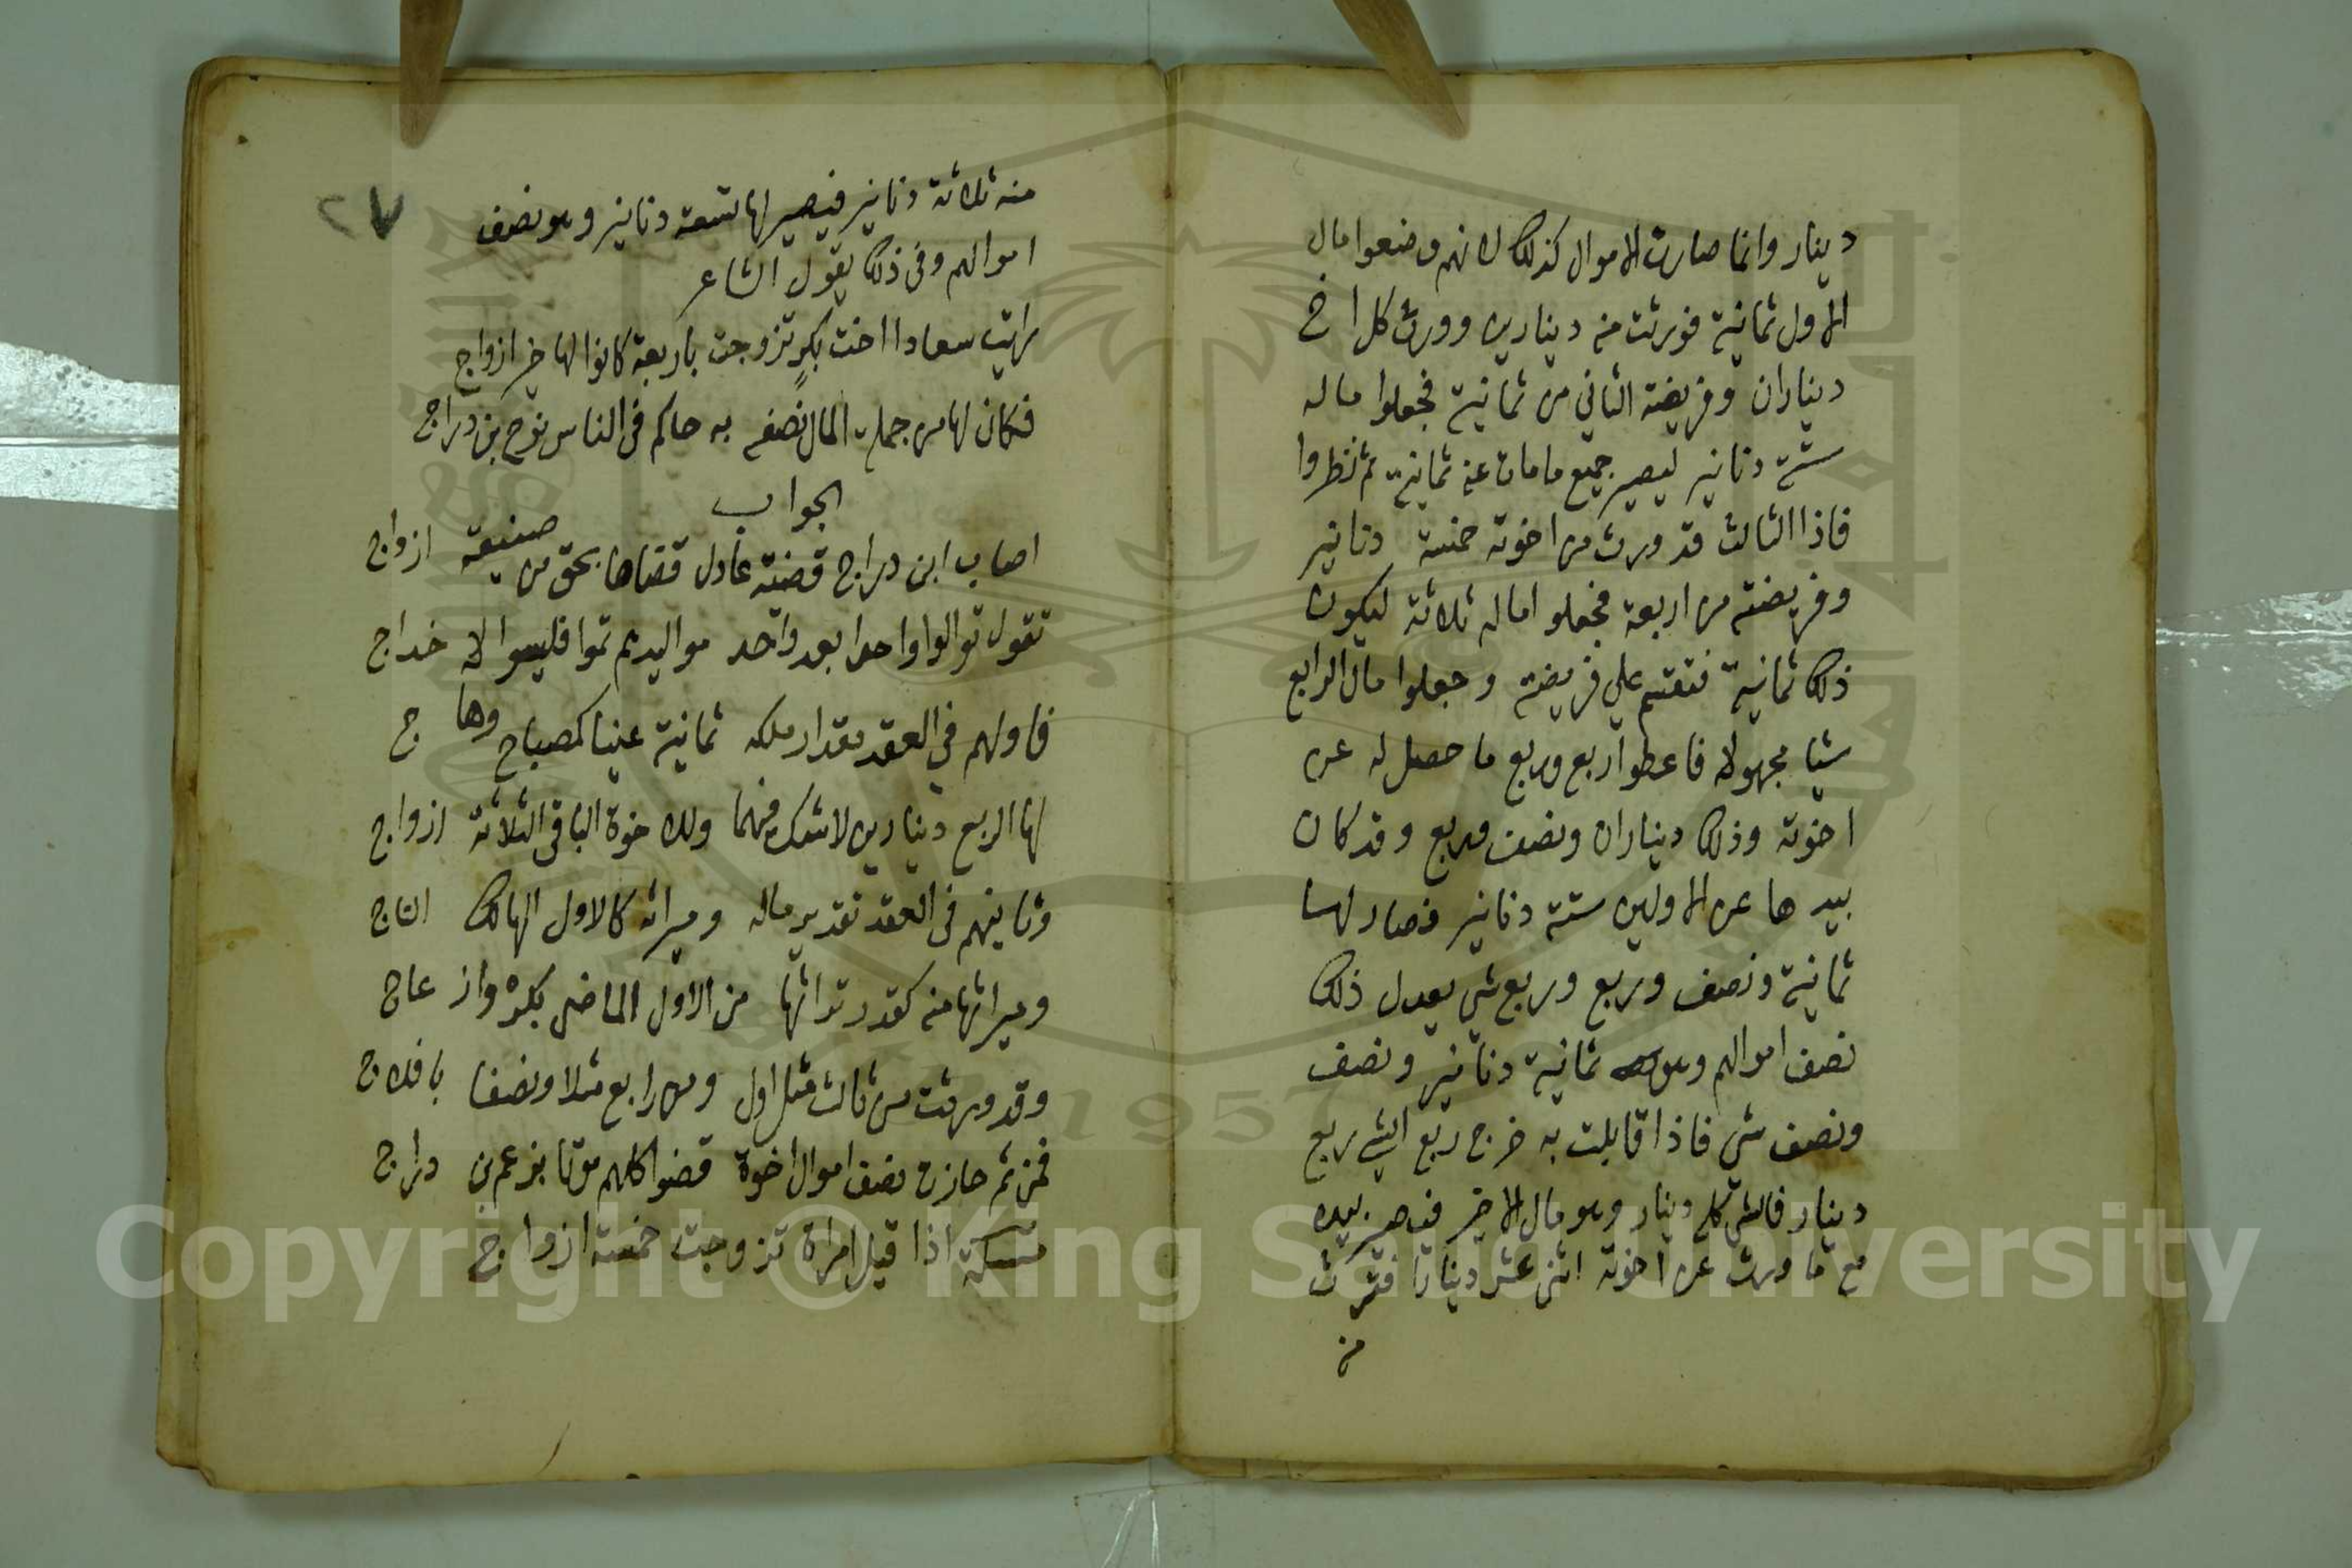 دينار وانما صارت الاموال كذلك لانهم وضعوا مال
الاول ثمانية فورثت منه دينارين وورث كل اخ
ديناران وفريضة الثاني من ثمانية فجعلوا ماله
ستة دنانير ليصير جميع ما مات عنه ثمانية ثم نظروا
فاذا الثالث قد ورث من اخوته خمسة دنانير
وفريضته من اربعة فجعلو اماله ثلاثة ليكون
ذلك ثمانية فتقسم علي فريضته وجعلوا مال الرابع
شيا مجهولا فاعطوا ربع وربع ما حصل له عن
اخوته وذلك ديناران ونصف وربع وقد كان
بيدها عن الاولين ستة دنانير فصار لها
ثمانية ونصف وربع وربع شي يعدل ذلك
نصف اموالهم وهو ثمانية دنانير ونصف
ونصف شي فاذا قابلت به خرج ربع الشي ربع
دينار فالشي كله دينار وهو مال الاخير فيصير بيده
مع ما ورث عن اخوته اثنى عشر دينارا فترث
منه
٢٧
منه ثلاثة دنانير فيصير لها تسعة دنانير وهو نصف
اموالهم وفى ذلك يقول الشاعر
رايت سعادا اخت بكر تزوجت باربعة كانوا لها خير ازواج
فكان لها من جملة المال نصفه به حاكم فى الناس نوح بن دراج
الجواب
اصاب ابن دراج قضية عادل قضاها بحق من صنيعة ازواج
تقول توالوا واحدا بعد واحد مواليدهم تموا فليسوا لا خداج
فاولهم في العقد مقدار ملكه ثمانية عينا كمصباح وهاج
لها الربع دينارين لا شك فيهما وللاخوة الباقى الثلاثة ازواج
وثانيهم فى العقد تقدير ماله وميراثه كالاول الهالك التاج
وميراثها منه كقدر تراثها من الاول الماضى بكره وازعاج
وقد ورثت من ثالث مثل اول ومن رابع مثلا ونصفا بافلاج
فمن ثم حازت نصف اموال اخوة قضوا كلهم موتا بزعم بن دراج
مسئلة اذا قيل امراة تزوجت خمسة ازواج
Copyright © King Saud University
1957